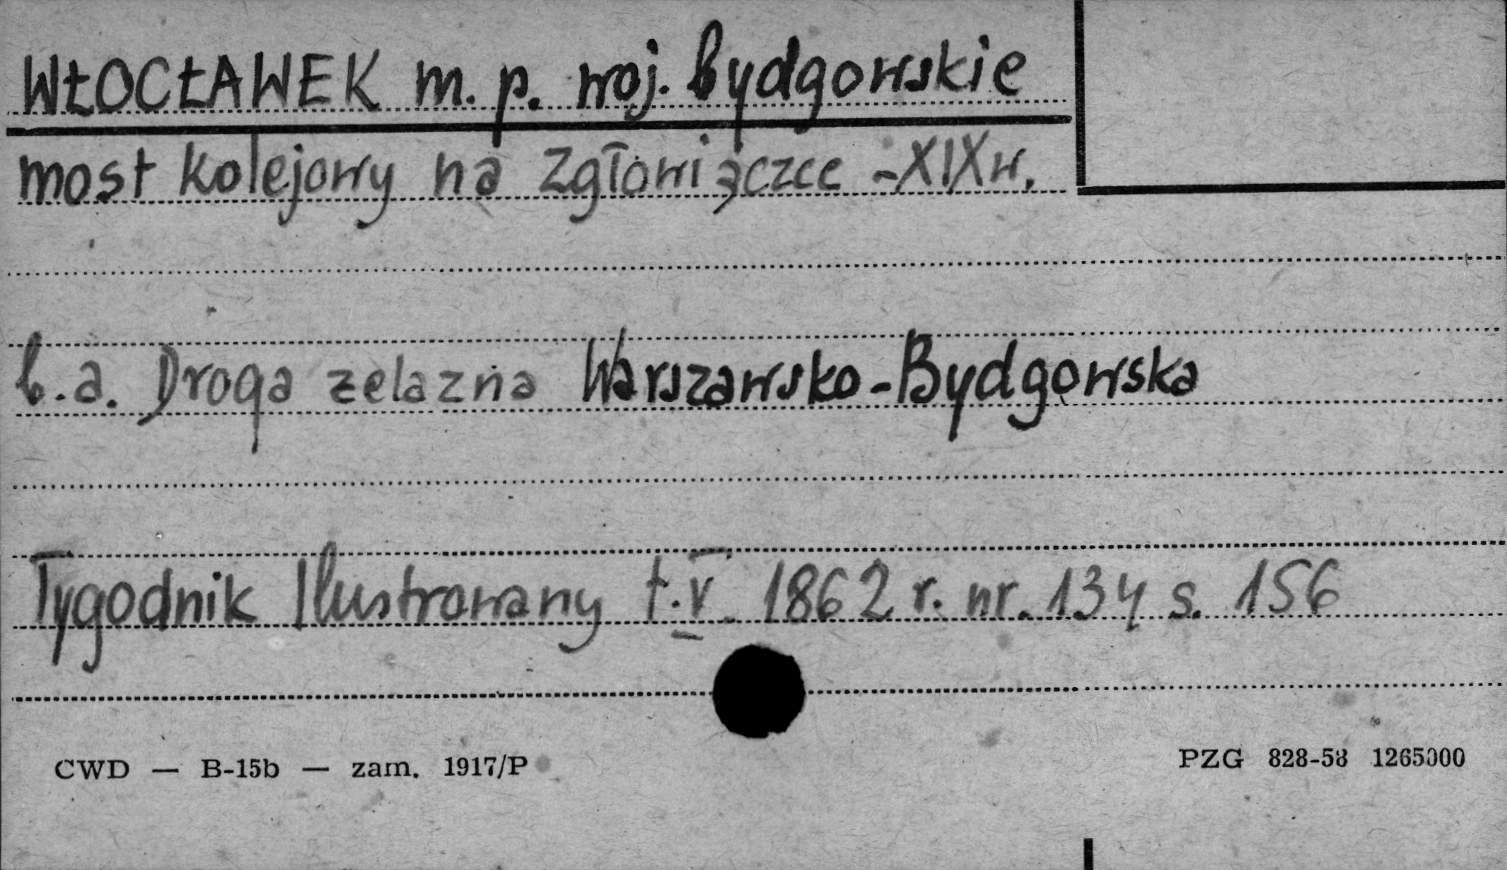 WŁOCŁAWEK m. p. woj. bydgowskie
most kolejowy na Zgłowiączce - XIX w.
b.a. Droga zelazna Warszawsko-Bydgowska
Tygodnik Ilustrowany t. V. 1862 r. nr. 134 s. 156
CWD — B-15b — zam. 1917/P
PZG 828-58 1265000